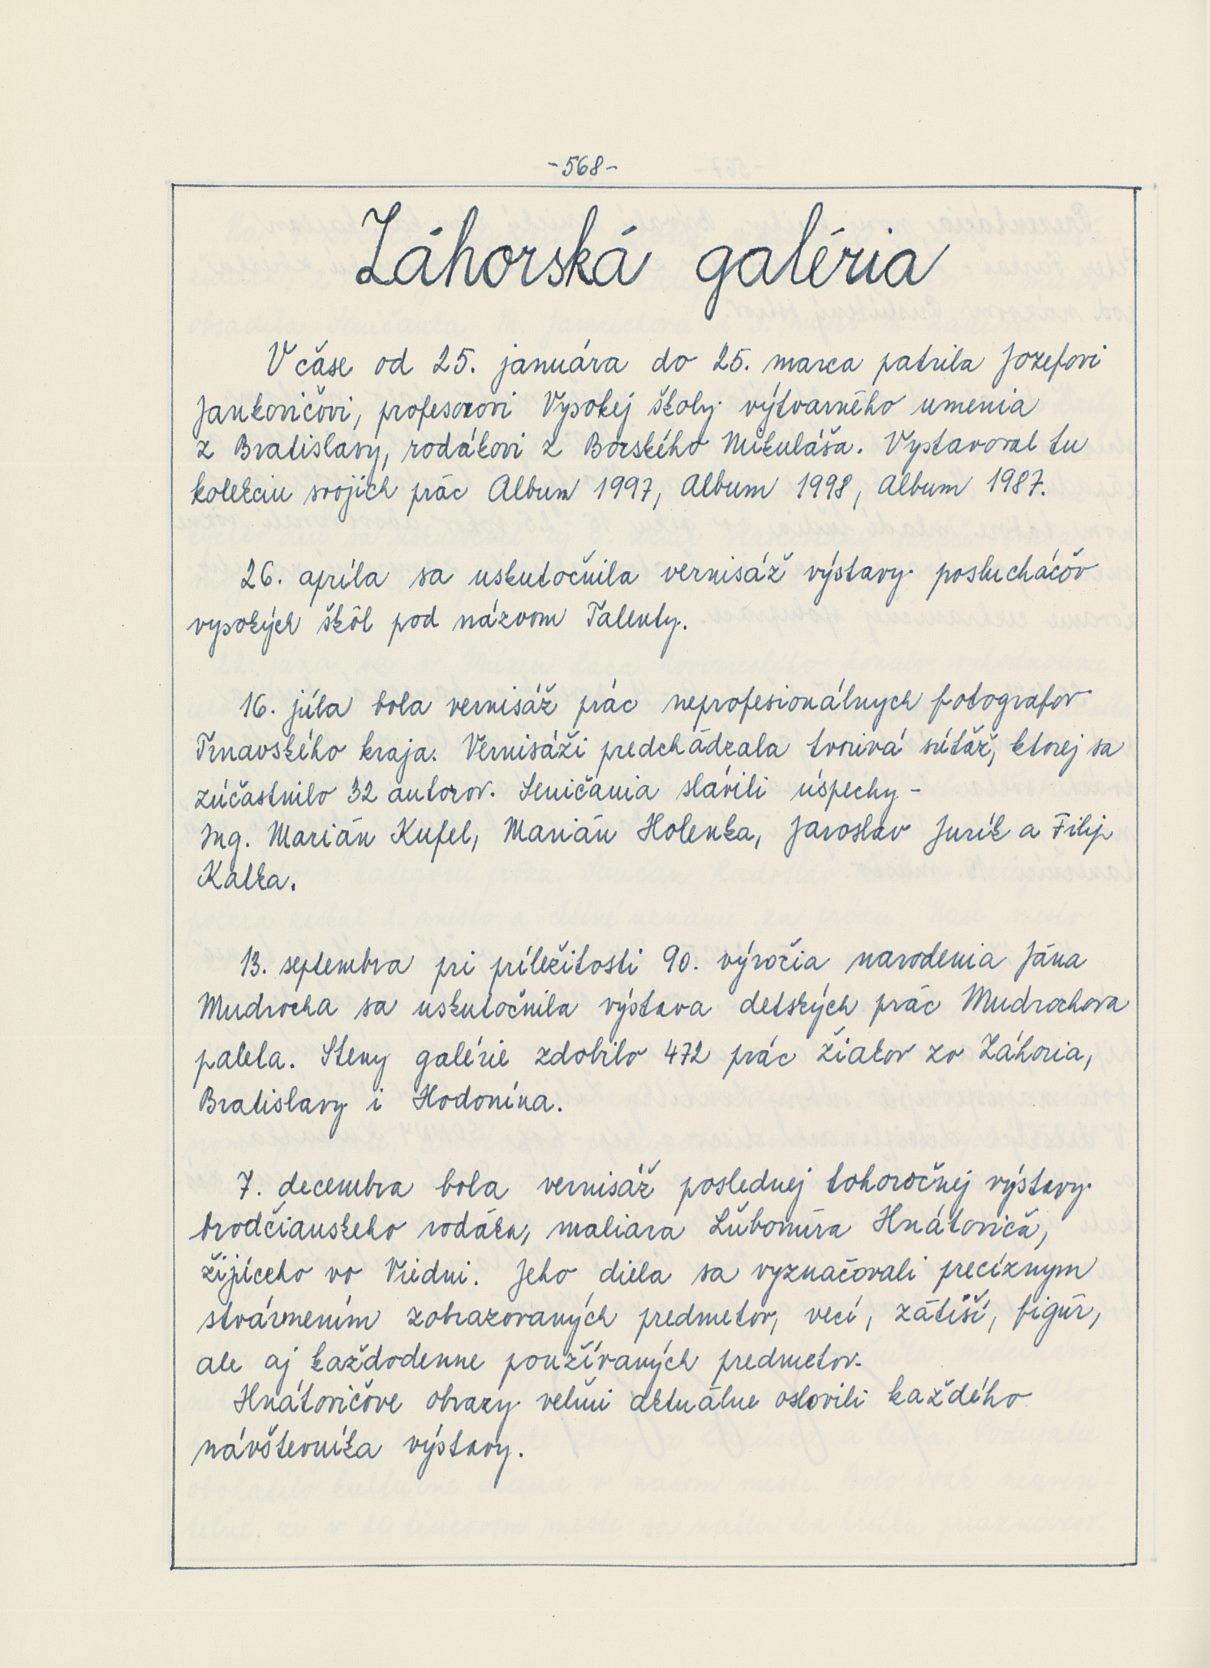 -568-
Záhorská galéria
V čase od 25. januára do 25. marca patrila Jozefovi
Jankovičovi, profesorovi Vysokej školy výtvarného umenia
z Bratislavy, rodákovi z Borského Mikuláša. Vystavoval tu
kolekciu svojich prác Album 1997, Album 1998, Album 1987.
26. apríla sa uskutočnila vernisáž výstavy poslucháčov
vysokých škôl pod názvom Talenty.
16. júla bola vernisáž prác neprofesionálnych fotografov
Trnavského kraja. Vernisáži predchádzala tvorivá súťaž, ktorej sa
zúčastnilo 32 autorov. Seničania slávili úspechy -
Ing. Marián Kufel, Marián Holenka, Jaroslav Jurík a Filip
Kalka.
13. septembra pri príležitosti 90. výročia narodenia Jána
Mudrocha sa uskutočnila výstava detských prác Mudrochova
paleta. Steny galérie zdobilo 472 prác žiakov zo Záhoria,
Bratislavy i Hodonína.
7. decembra bola vernisáž poslednej tohoročnej výstavy
brodčianskeho rodáka, maliara Ľubomíra Hnátoviča,
žijúceho vo Viedni. Jeho diela sa vyznačovali precíznym
stvárnením zobrazovaných predmetov, vecí, zátiší, figúr,
ale aj každodenne používaných predmetov.
Hnátovičove obrazy veľmi aktuálne oslovili každého
návštevníka výstavy.